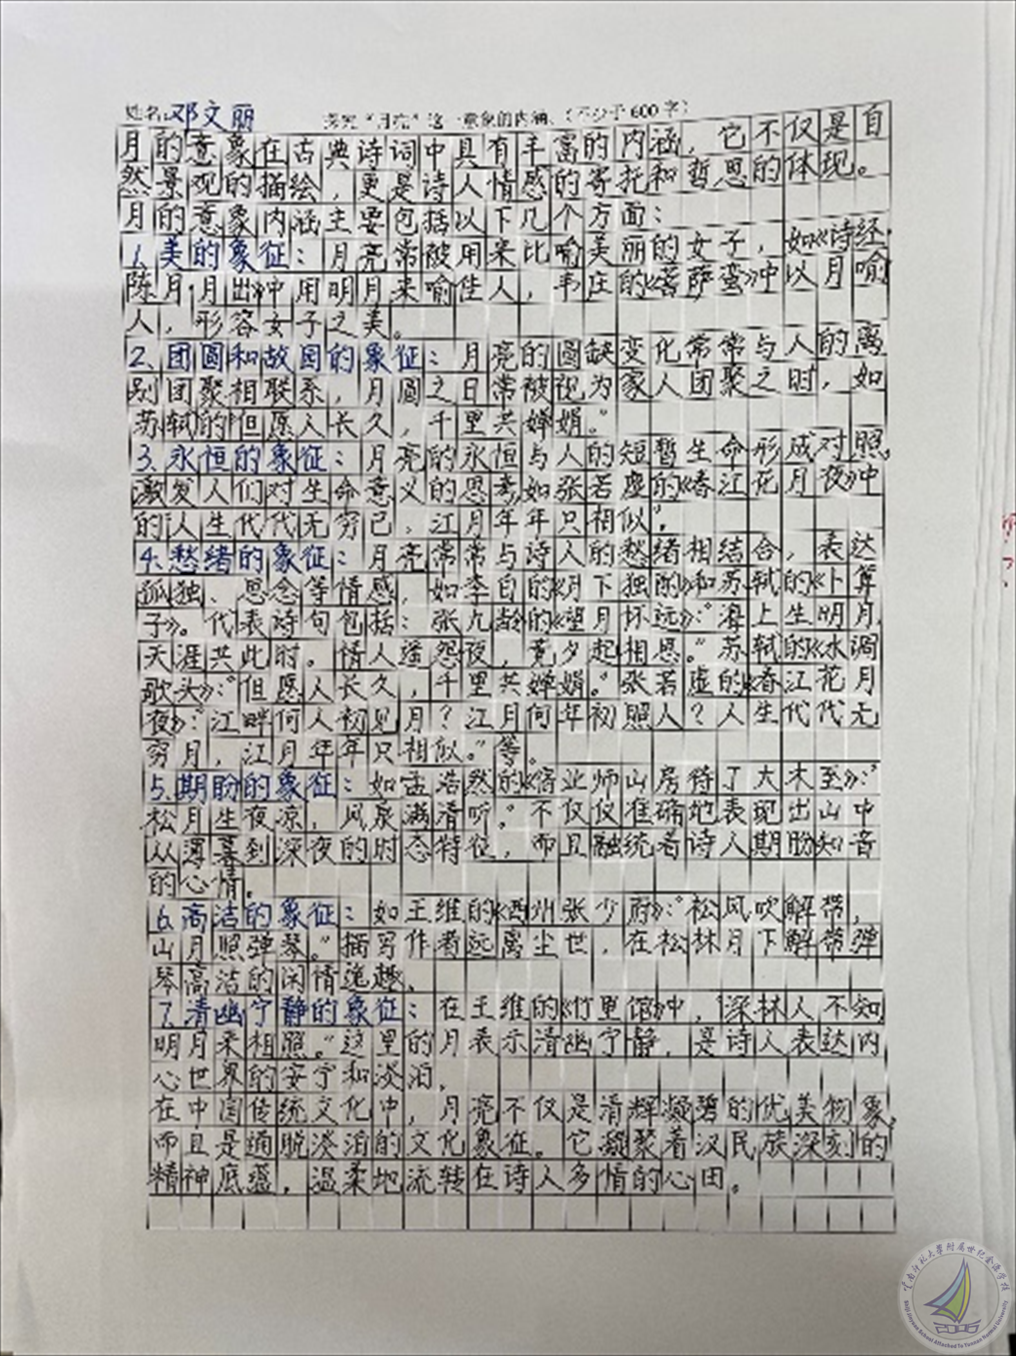 姓名:邓文丽
探究“月亮”这一意象的内涵。(不少于600字)
月的意象在古典诗词中具有丰富的内涵，它不仅是自
然景观的描绘，更是诗人情感的寄托和哲思的体现。
月的意象内涵主要包括以下几个方面：
1.美的象征：月亮常被用来比喻美丽的女子，如《诗经·
陈月·月出》中用明月来喻佳人，韦庄的《菩萨蛮》中以月喻
人，形容女子之美。
2.团圆和故园的象征：月亮的圆缺变化常常与人的离
别团聚相联系，月圆之日常被视为家人团聚之时，如
苏轼的“但愿人长久，千里共婵娟。”
3.永恒的象征：月亮的永恒与人的短暂生命形成对照，
激发人们对生命意义的思考，如张若虚的《春江花月夜》中
的“人生代代无穷已，江月年年只相似”。
4.愁绪的象征：月亮常常与诗人的愁绪相结合，表达
孤独、思念等情感，如李白的《月下独酌》和苏轼的《卜算
子》。代表诗句包括：张九龄的《望月怀远》：“海上生明月，
天涯共此时。情人遥怨夜，竟夕起相思。”苏轼的《水调
歌头》：“但愿人长久，千里共婵娟。”张若虚的《春江花月
夜》：“江畔何人初见月？江月何年初照人？人生代代无
穷月，江月年年只相似。”等。
5.期盼的象征：如孟浩然的《宿业师山房待丁大不至》：“
松月生夜凉，风泉满清听。”不仅仅准确地表现出山中
从薄暮到深夜的时态特征，而且融统着诗人期盼知音
的心情。
6.高洁的象征：如王维的《酬州张少府》：“松风吹解带，
山月照弹琴。”描写作者远离尘世，在松林月下解带弹
琴高洁的闲情逸趣。
7.清幽宁静的象征：在王维的《竹里馆》中，“深林人不知
明月来相照。”这里的月表示清幽宁静，是诗人表达内
心世界的安宁和淡泊。
在中国传统文化中，月亮不仅是清辉凝碧的优美物象，
而且是通脱淡泊的文化象征。它凝聚着汉民族深刻的
精神底蕴，温柔地流转在诗人多情的心田。
云南师范大学附属世纪金源学校